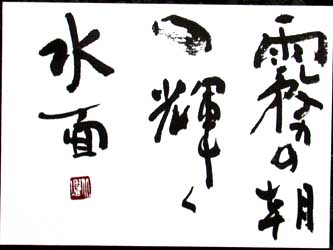 霧の朝
の輝く
水面